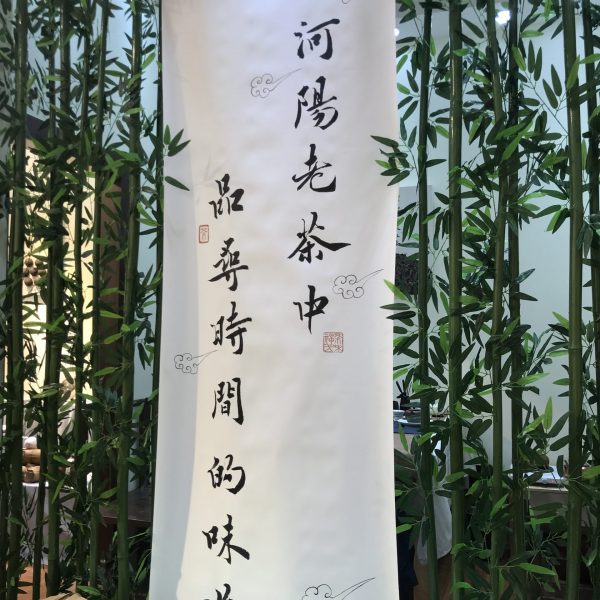 河陽老茶中
品尋時間的味